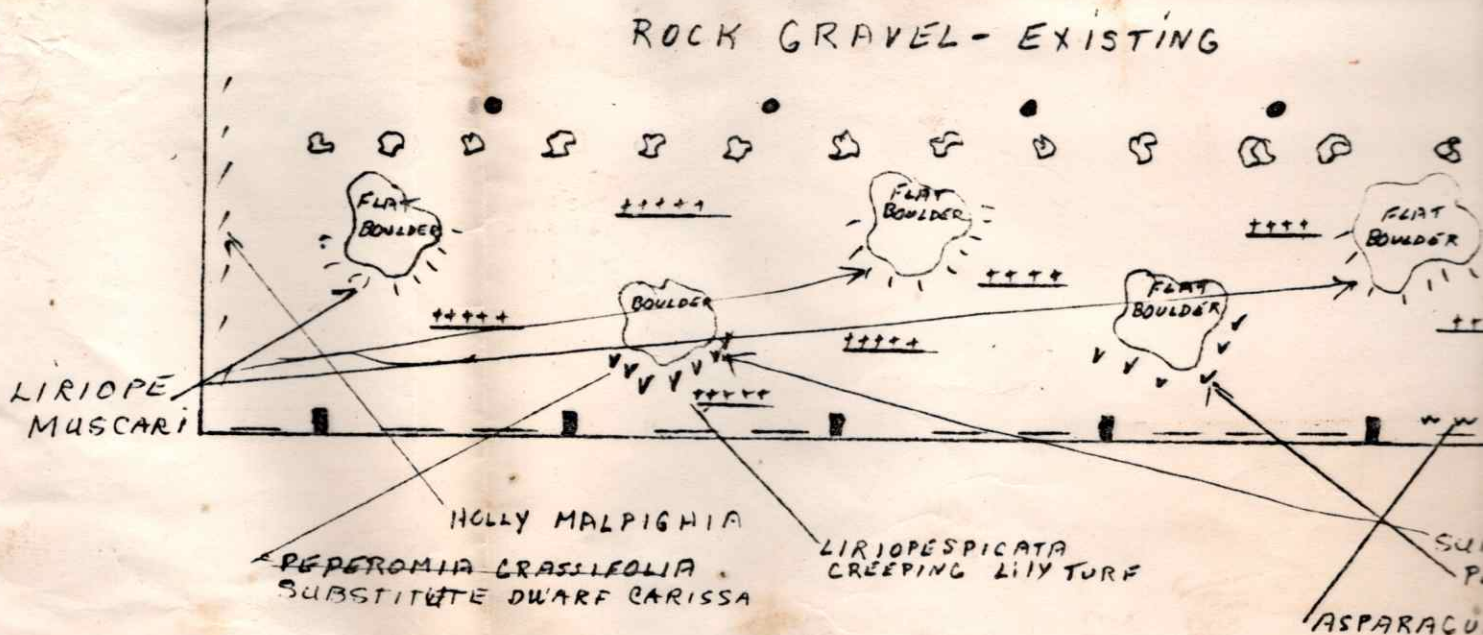 ROCK GRAVEL - EXISTING
FLAT
BOULDER
FLAT
BOULDER
FLAT
BOULDER
BOULDER
FLAT
BOULDER
LIRIOPE
MUSCARI
HOLLY MALPIGHIA
PEPEROMIA CRASSIFOLIA
SUBSTITUTE DWARF CARISSA
LIRIOPESPICATA
CREEPING LILY TURF